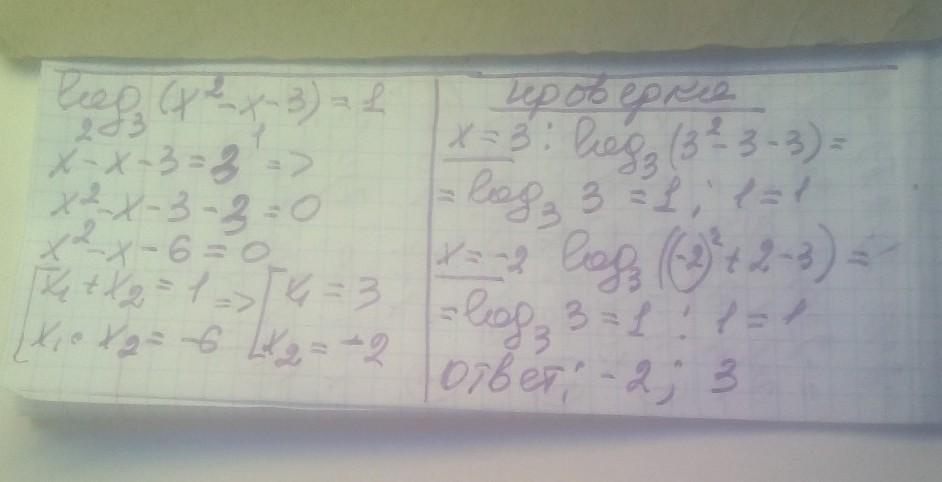 log₃(x²-x-3)=1
x²-x-3=3¹ =>
x²-x-3-3=0
x²-x-6=0
[x₁+x₂=1 => [x₁=3
x₁·x₂=-6 x₂=-2
проверка
x=3: log₃(3²-3-3)=
=log₃ 3=1; 1=1
x=-2 log₃((-2)²+2-3)=
=log₃ 3=1; 1=1
ответ: -2; 3